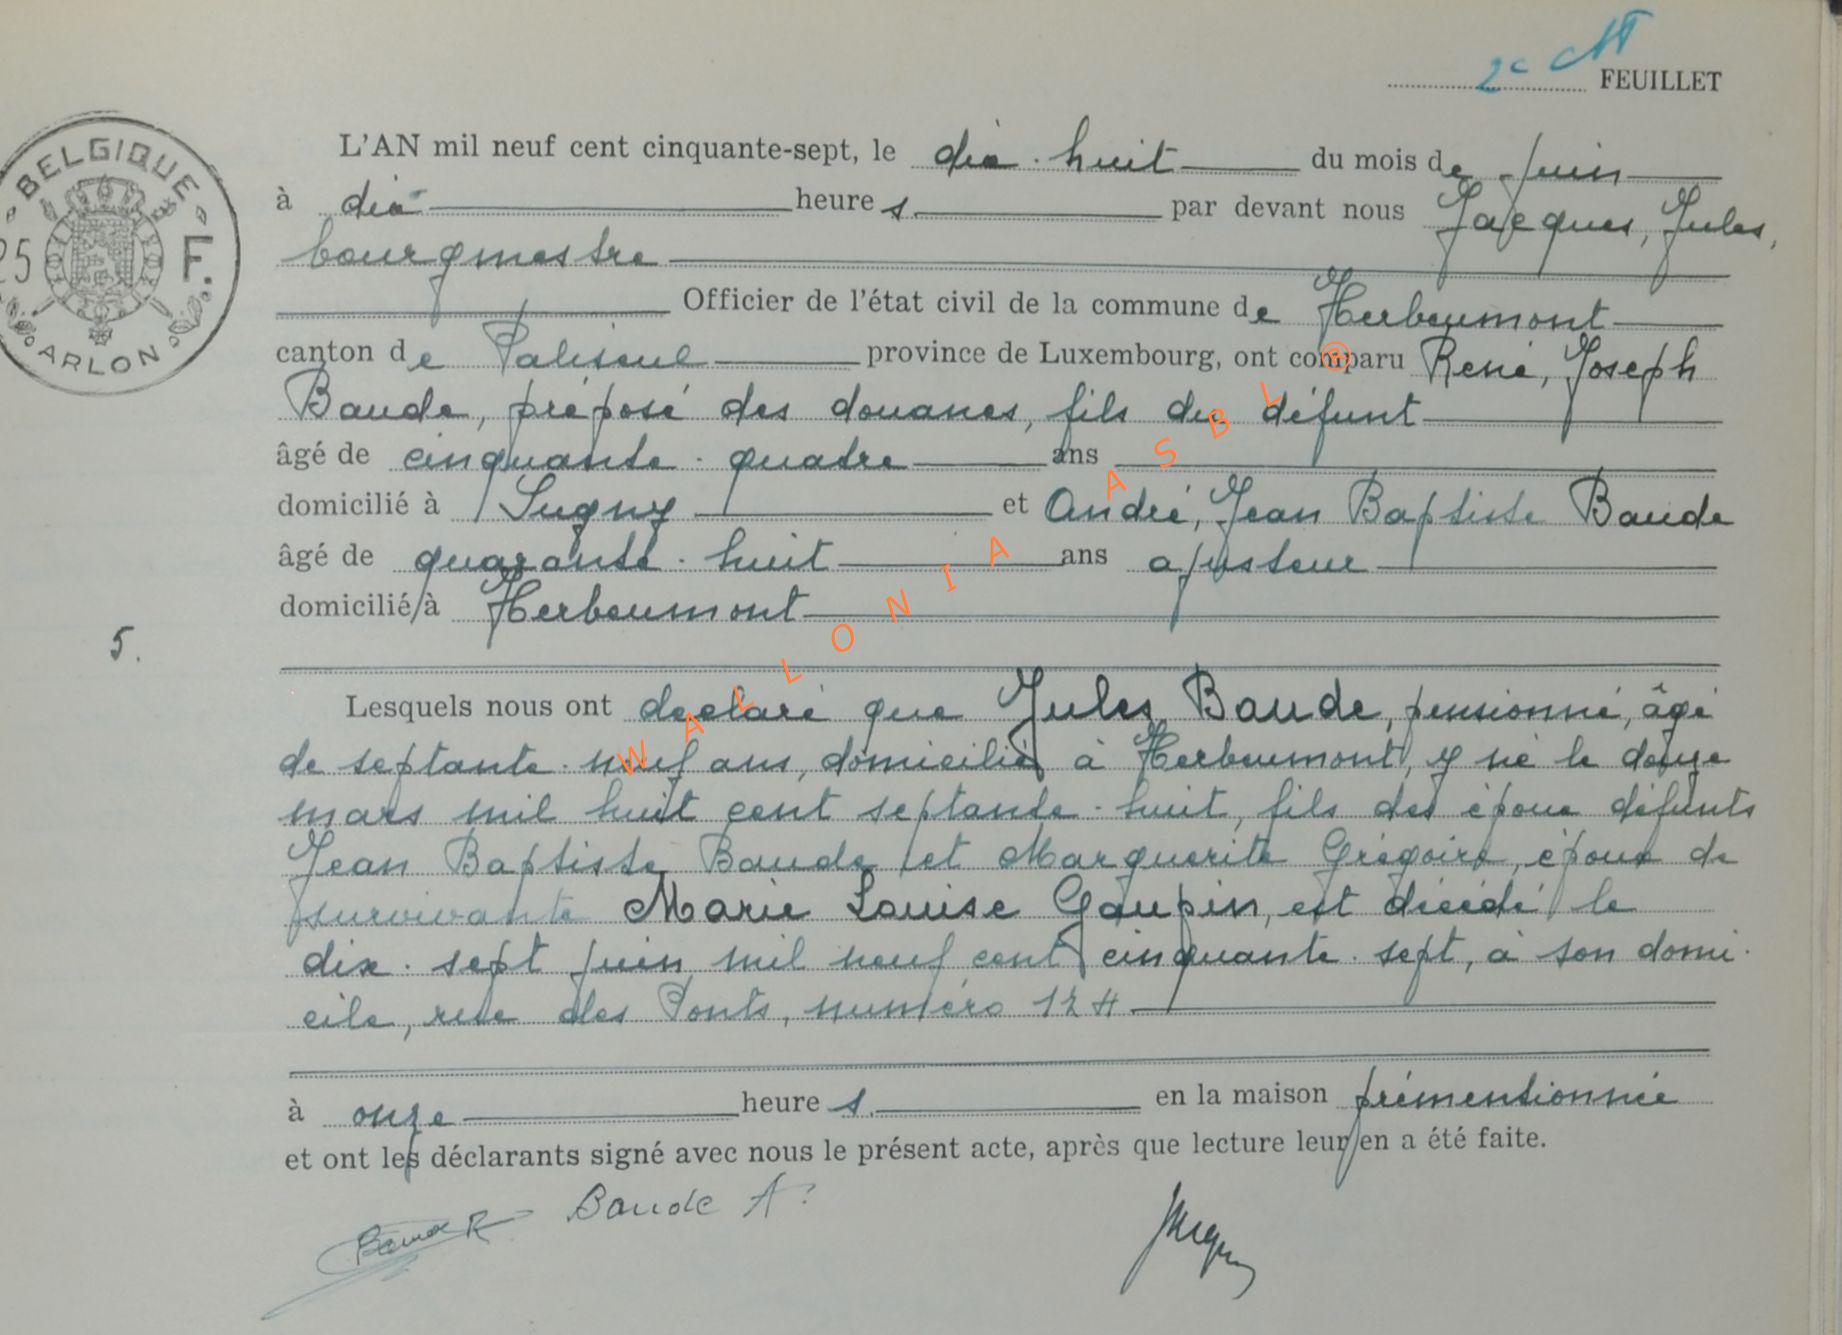 2e
FEUILLET
BELGIQUE
25 F.
ARLON
L'AN mil neuf cent cinquante-sept, le dix-huit du mois de juin
à dix heures par devant nous Jacques, Jules,
bourgmestre
Officier de l'état civil de la commune de Herbeumont
canton de Paliseul province de Luxembourg, ont comparu René, Joseph
Baude, préposé des douanes, fils du défunt
âgé de cinquante-quatre ans
domicilié à Sugny et André, Jean Baptiste Baude
âgé de quarante-huit ans ajusteur
domicilié à Herbeumont
5.
Lesquels nous ont déclaré que Jules Baude, pensionné, âgé
de septante-neuf ans, domicilié à Herbeumont, y né le douze
mars mil huit cent septante-huit, fils des époux défunts
Jean Baptiste Baude et Marguerite Grégoire, époux de
survivante Marie Louise Gaupin, est décédé le
dix-sept juin mil neuf cent cinquante-sept, à son domi-
cile, rue des Ponts, numéro 124
à onze heures en la maison prémentionnée
et ont les déclarants signé avec nous le présent acte, après que lecture leur en a été faite.
Baude R Baude A.
WALLONIA ASBL ®